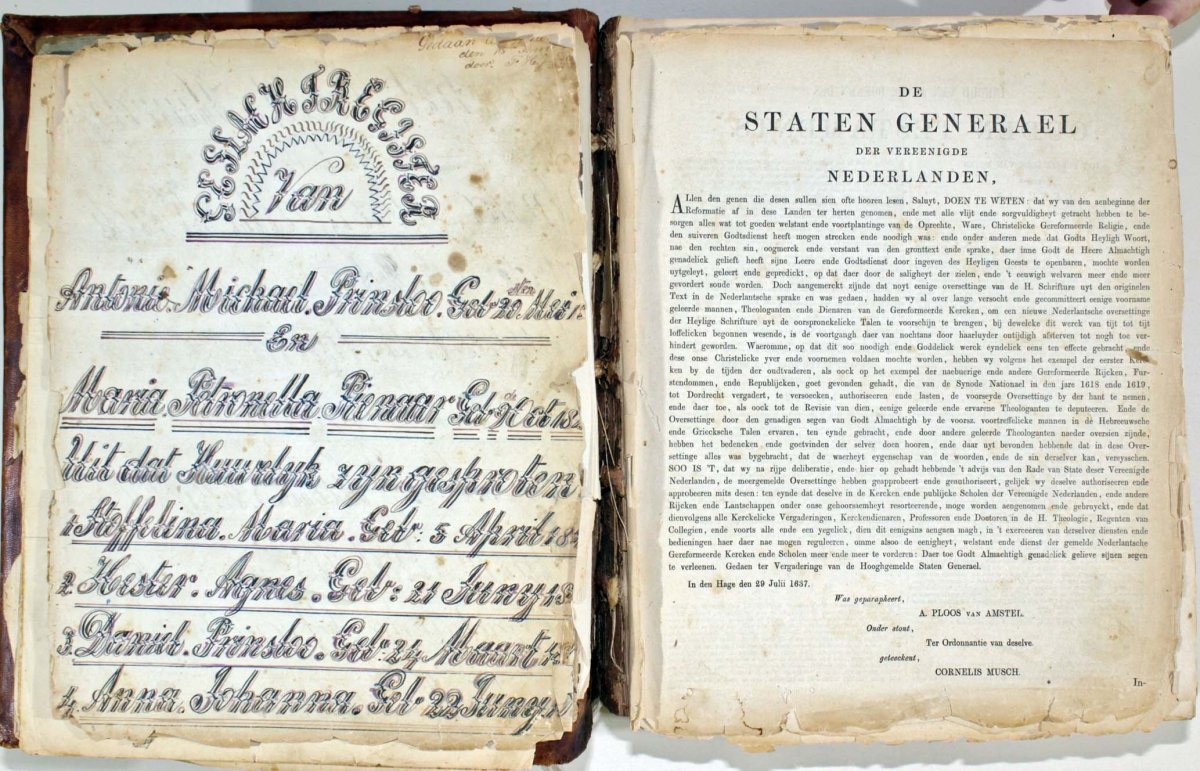 Gedaan
den
door
GESLACHTREGISTER
Van
Antonie Michael Prinsloo. Geb 20 Mei 1
En
Maria Petronella Pienaar Geb 9de Oct 18
Uit dat Huwelyk zyn gesproten
1 Steffelina. Maria. Geb: 5 April 18
2 Hester. Agnes. Geb: 21 Juny 18
3 Daniel. Prinsloo. Geb: 24 Maart
4 Anna. Johanna. Geb 22 Juny
DE
STATEN GENERAEL
DER VEREENIGDE
NEDERLANDEN,
ALlen den genen die desen sullen sien ofte hooren lesen, Saluyt, DOEN TE WETEN: dat wy van den aenbeginne der
Reformatie af in dese Landen ter herten genomen, ende met alle vlijt ende sorgvuldigheyt getracht hebben te be-
sorgen alles wat tot goeden welstant ende voortplantinge van de Oprechte, Ware, Christelicke Gereformeerde Religie, ende
den suiveren Godtsdienst heeft mogen strecken ende noodigh was: ende onder anderen mede dat Godts Heyligh Woort,
nae den rechten sin, oogmerck ende verstant van den gronttext ende sprake, daer inne Godt de Heere Almachtigh
genadelick gelieft heeft sijne Leere ende Godtsdienst door ingeven des Heyligen Geests te openbaren, mochte worden
uytgeleyt, geleert ende gepredickt, op dat daer door de saligheyt der zielen, ende 't eeuwigh welvaren meer ende meer
gevordert soude worden. Doch aengemerckt zijnde dat noyt eenige oversettinge van de H. Schrifture uyt den originelen
Text in de Nederlantsche sprake en was gedaen, hadden wy al over lange versocht ende gecommitteert eenige voorname
geleerde mannen, Theologanten ende Dienaren van de Gereformeerde Kercken, om een nieuwe Nederlantsche oversettinge
der Heylige Schrifture uyt de oorspronckelicke Talen te voorschijn te brengen, bij deweleke dit werck van tijt tot tijt
loffelicken begonnen wesende, is de voortgangh daer van nochtans door haarluyder ontijdigh afsterven tot nogh toe ver-
hindert geworden. Waeromme, op dat dit soo noodigh ende Goddelick werck eyndelick eens ten effecte gebracht, ende
dese onse Christelicke yver ende voornemen voldaen mochte worden, hebben wy volgens het exempel der eerster Ker-
ken by de tijden der oudtvaderen, als oock op het exempel der naebuerige ende andere Gereformeerde Rijcken, Fur-
stendommen, ende Republijcken, goet gevonden gehadt, die van de Synode Nationael in den jare 1618 ende 1619,
tot Dordrecht vergadert, te versoecken, authoriseeren ende lasten, de voorseyde Oversettinge by der hant te nemen,
ende daer toe, als oock tot de Revisie van dien, eenige geleerde ende ervarene Theologanten te deputeeren. Ende de
Oversettinge door den genadigen segen van Godt Almachtigh by de voorsz. voortreffelicke mannen in de Hebreeuwsche
ende Griecksche Talen ervaren, ten eynde gebracht, ende door andere geleerde Theologanten naeder oversien zijnde,
hebben het bedencken ende goetvinden der selver doen hooren, ende daer uyt bevonden hebbende dat in dese Over-
settinge alles was bygebracht, dat de waerheyt eygenschap van de woorden, ende de sin derselver kan, vereysschen.
SOO IS 'T, dat wy na rijpe deliberatie, ende hier op gehadt hebbende 't advijs van den Rade van State deser Vereenigde
Nederlanden, de meergemelde Oversettinge hebben geapprobeert ende geauthoriseert, gelijck wy deselve authoriseeren ende
approbeeren mits desen: ten eynde dat deselve in de Kercken ende publijcke Scholen der Vereenigde Nederlanden, ende andere
Rijcken ende Lantschappen onder onse gehoorsaemheyt resorteerende, moge worden aengenomen ende gebruyckt, ende dat
dienvolgens alle Kerckelicke Vergaderingen, Kerckendienaren, Professoren ende Doctoren in de H. Theologie, Regenten van
Collegien, ende voorts alle ende een yegelick, dien dit eenigsins aengaen magh, in 't exerceeren van derselver diensten ende
bedieningen haer daer nae mogen reguleeren, omme alsoo de eenigheyt, welstant ende dienst der gemelde Nederlantsche
Gereformeerde Kercken ende Scholen meer ende meer te vorderen: Daer toe Godt Almachtigh genadelick gelieve sijnen segen
te verleenen. Gedaen ter Vergaderinge van de Hooghgemelde Staten Generael.
In den Hage den 29 Julii 1637.
Was geparapheert,
A. PLOOS VAN AMSTEL.
Onder stont,
Ter Ordonnantie van deselve.
geteeckent,
CORNELIS MUSCH.
In-